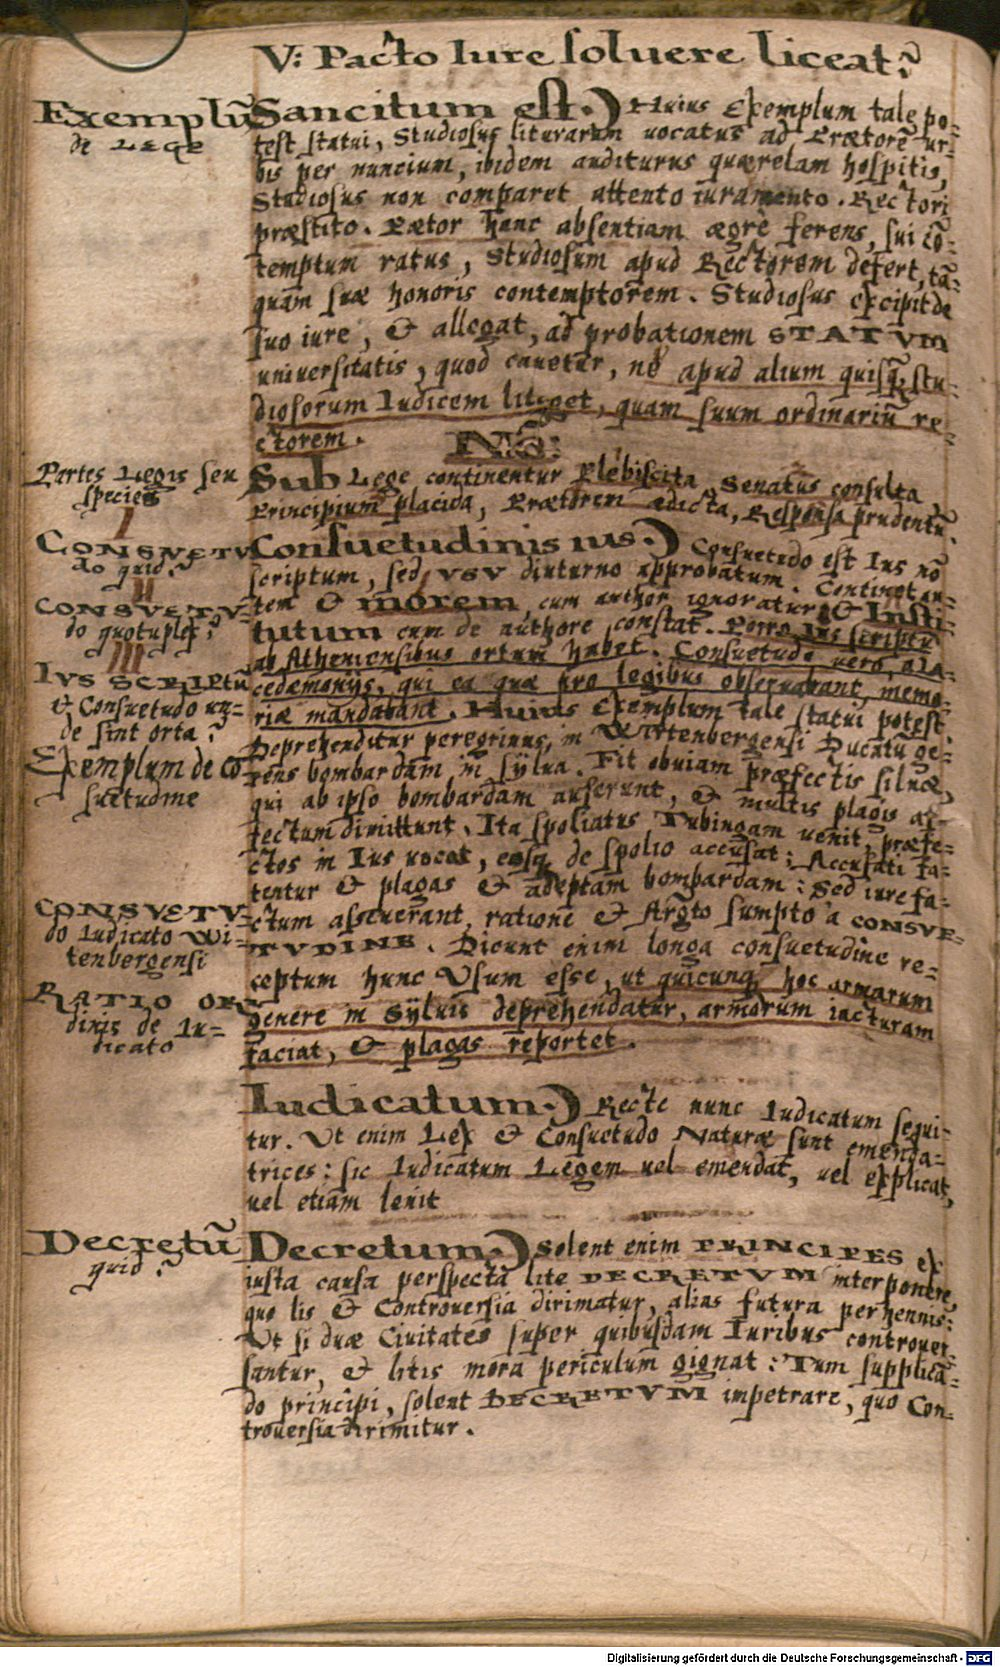 V: Pacto Iure soluere liceat?
Exemplũ
de Lege
Sancitum est.) Huius Exemplum tale po-
test statui, Studiosus literarum uocatus ad Prætorẽ ur-
bis per nuncium, ibidem auditurus quærelam hospitis,
Studiosus non comparet attento iuramento. Rectori
præstito. Prætor hanc absentiam ægrè ferens, sui cõ-
temptum ratus, Studiosum apud Rectorem defert, tã-
quam suæ honoris contemptorem. Studiosus excipit de
suo iure, & allegat, ad probationem STATVM
uniuersitatis, quod cauetur, ne apud alium quisq, stu-
diosorum Iudicem litiget, quam suum ordinariũ re-
ctorem.
Partes Legis seu
species
Sub Lege continentur Plebiscita, Senatus consulta,
Principium placida, Prætorem ædicta, Responsa prudentũ.
I
CONSVETV
do quid?
Consuetudinis ius.) Consuetudo est Ius nõ
scriptum, sed VSV diuturno approbatum. Continet au-
II
CONSVETV-
do quotuplex?
tem & morem, cum author ignoratur, & Insti-
tutum cum de authore constat. Porro Ius scriptũ
ab Atheniensibus ortum habet. Consuetudo uero, a La-
III
IVS SCRIPTŨ
& Consuetudo un-
de sint orta?
cedæmonijs, qui ea quæ pro legibus obseruarant, memo-
riæ mandabant. Huius Exemplum tale statui potest.
Deprehenditur peregrinus, in Wirtenbergensi Ducatu ge-
Exemplum de Cõ
suetudine
rens bombardam in sylua. Fit obuiam præfectis siluæ,
qui ab ipso bombardam auferunt, & multis plagis af-
fectum dimittunt. Ita spoliatus Tubingam uenit, præfe-
ctos in Ius uocat, eosq de spolio accusat; Accusati fa-
tentur & plagas & adeptam bombardam: Sed iure fa-
CONSVETV-
do Iudicato Wi-
tenbergensi
ctum asseuerant, ratione & Argto sumpto à CONSVE-
TVDINE. Dicunt enim longa consuetudine re-
ceptum hunc Vsum esse, ut quicunq hoc armarum
RATIO OR
dinis de Iu-
dicato
genere in Syluis deprehendatur, armorum iacturam
faciat, & plagas reportet.
Iudicatum.) Recte nunc Iudicatum sequi-
tur. Vt enim Lex & Consuetudo Naturæ sunt emenda-
trices: sic Iudicatum Legem uel emendat, uel explicat,
uel etiam lenit
Decretũ
quid?
Decretum.) Solent enim PRINCIPES ex
iusta causa perspecta lite DECRETVM interponere,
quo lis & Controuersia dirimatur, alias futura perhennis:
Vt si duæ Ciuitates super quibusdam Iuribus controuer-
santur, & litis mora periculum gignat: Tum supplicã-
do principi, solent DECRETVM impetrare, quo Con-
trouersia dirimitur.
Digitalisierung gefördert durch die Deutsche Forschungsgemeinschaft - DFG